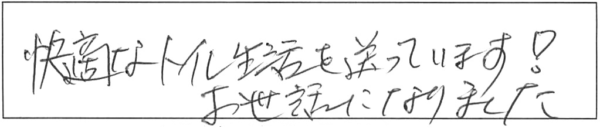 快適なトイレ生活を送っています!
お世話になりました